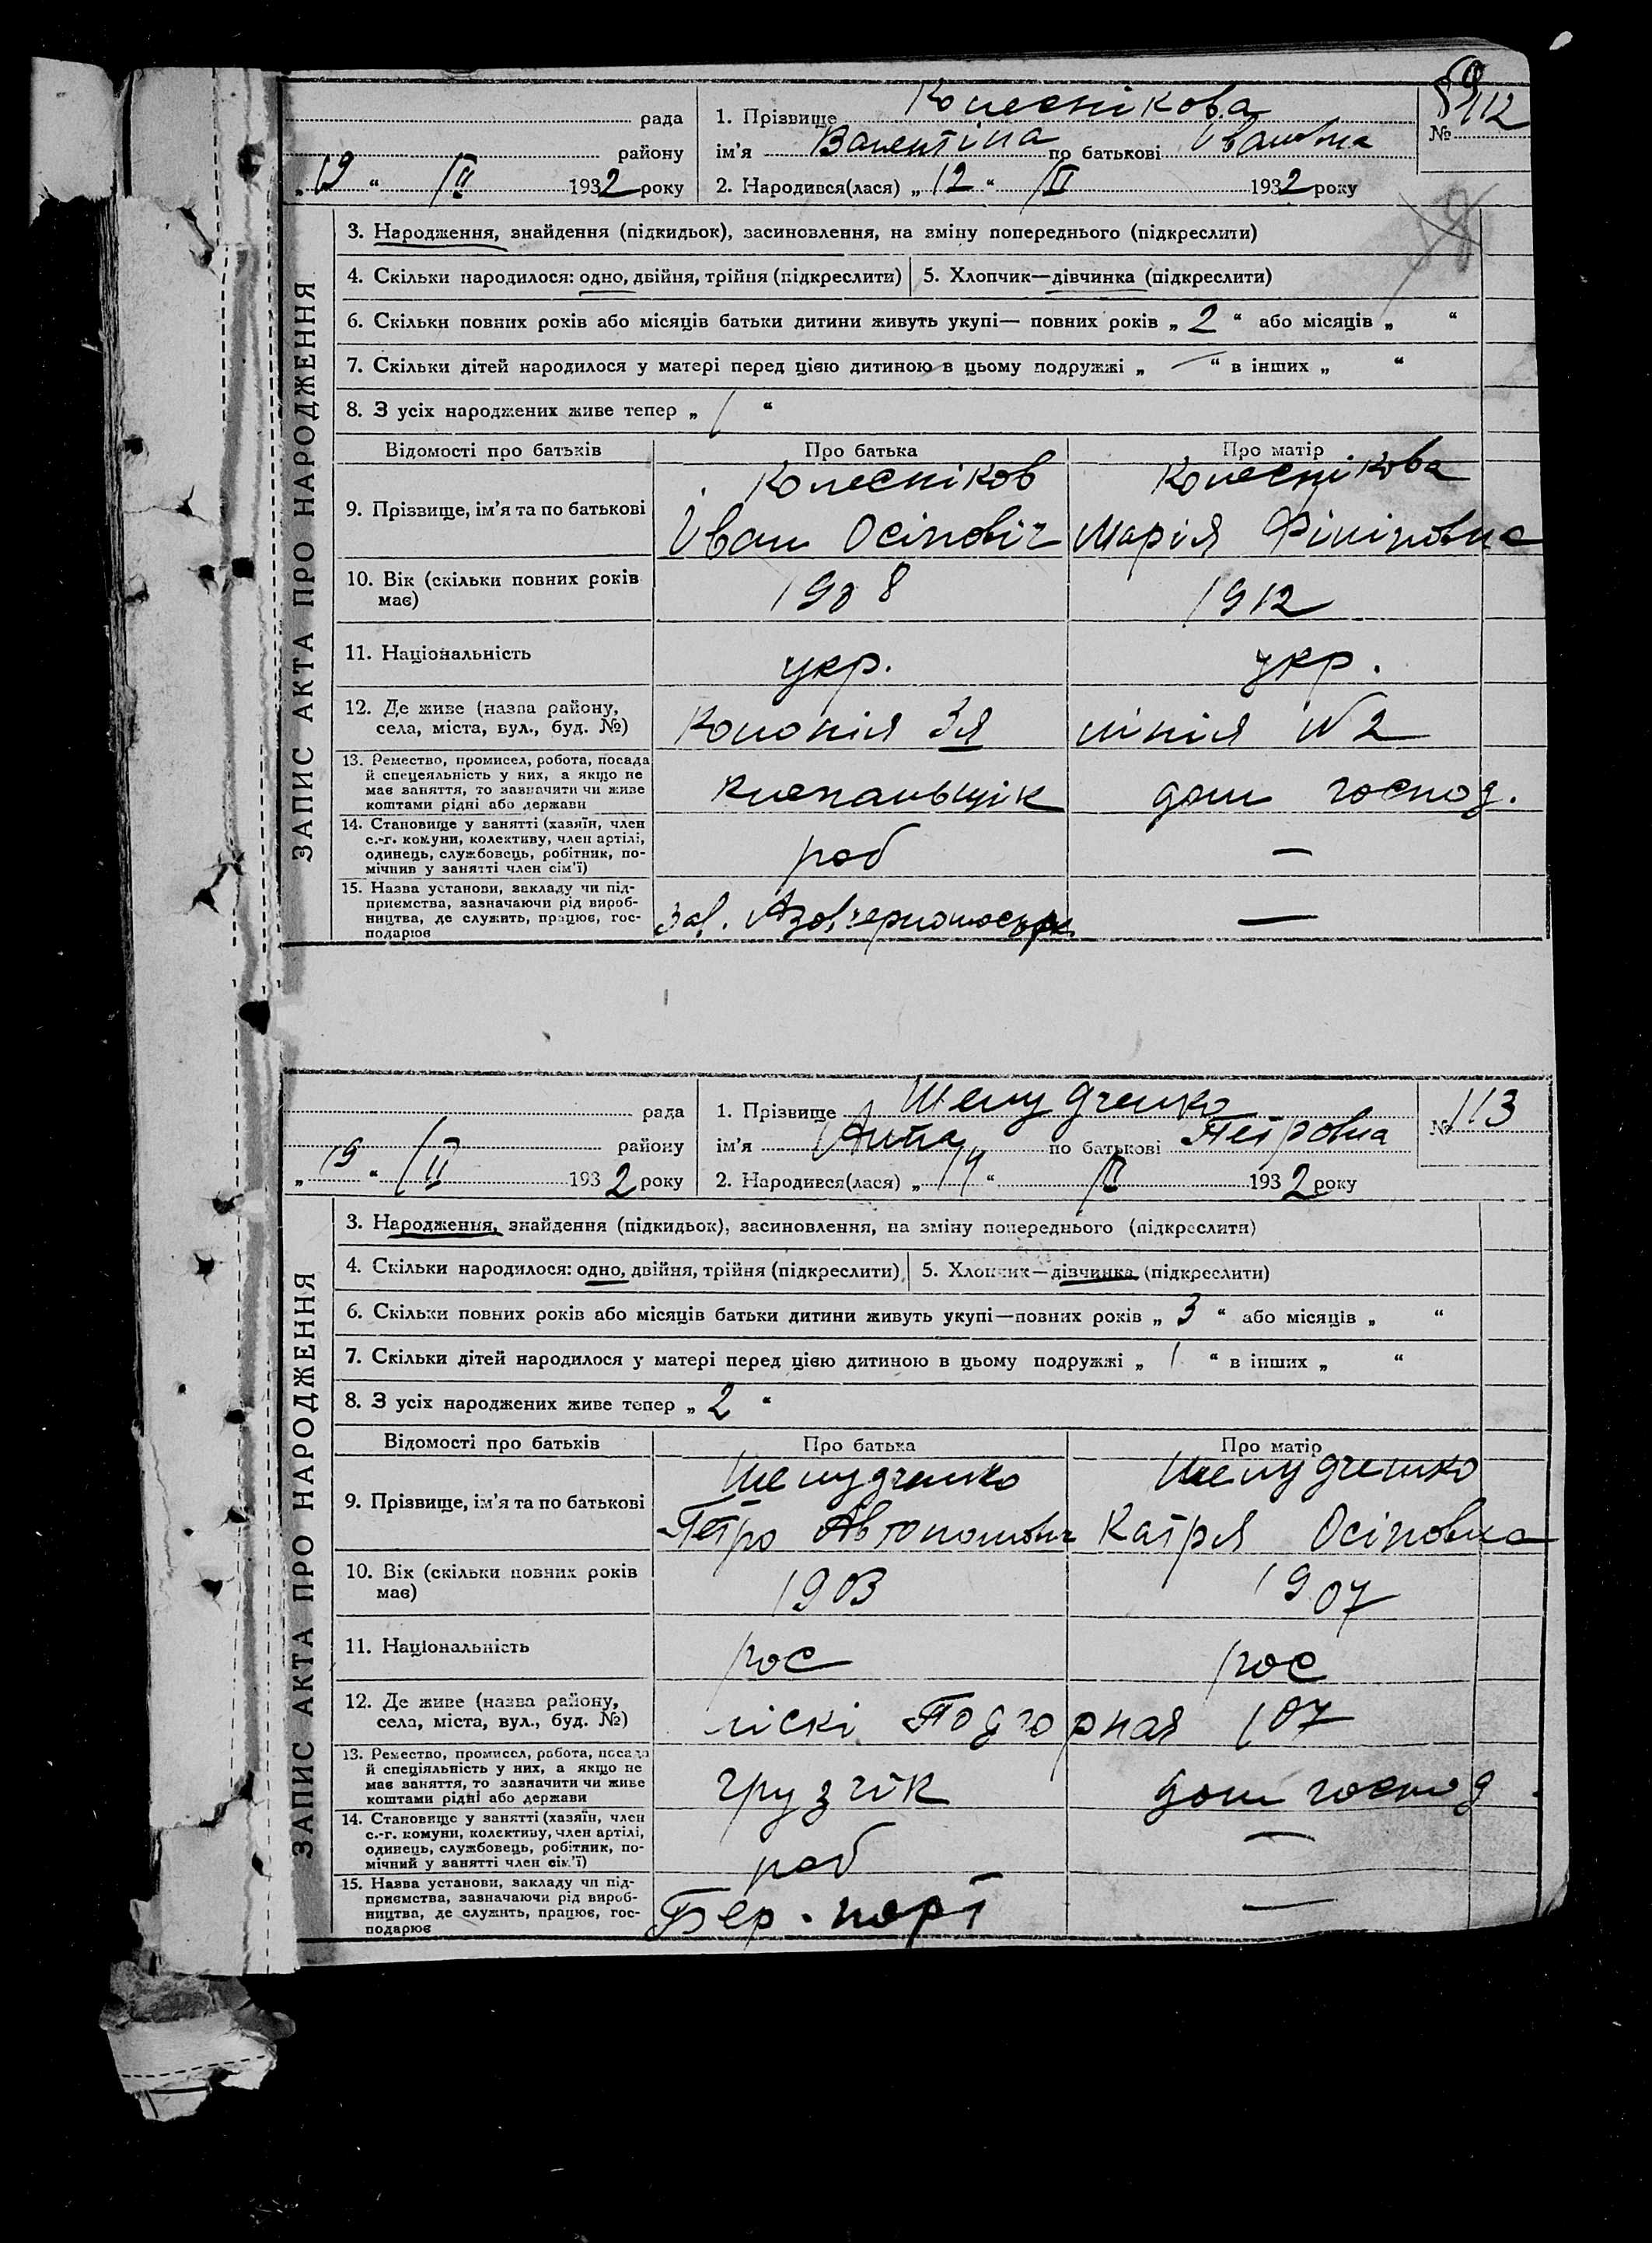 112
рада 1. Прізвище Колеснікова №
району ім'я Валентіна по батькові Івановна
„19“ II 1932 року 2. Народився(лася) „12“ II 1932 року
ЗАПИС АКТА ПРО НАРОДЖЕННЯ
3. Народження, знайдення (підкидьок), засиновлення, на зміну попереднього (підкреслити)
4. Скільки народилося: одно, двійня, трійня (підкреслити) 5. Хлопчик—дівчинка (підкреслити)
6. Скільки повних років або місяців батьки дитини живуть укупі— повних років „2“ або місяців „ “
7. Скільки дітей народилося у матері перед цією дитиною в цьому подружжі „—“ в інших „ “
8. З усіх народжених живе тепер „1“
Відомості про батьків Про батька Про матір
Колесніков Колеснікова
9. Прізвище, ім'я та по батькові
Іван Осіповіч Марія Філіповна
10. Вік (скільки повних років
має) 1908 1912
11. Національність укр. укр.
12. Де живе (назва району,
села, міста, вул., буд. №) Колонія 3я лінія №2
13. Ремество, промисел, робота, посада
й спецеяльність у них, а якщо не
має заняття, то зазначити чи живе
коштами рідні або держави
клепальщік дом господ.
14. Становище у занятті (хазяїн, член
с.-г. комуни, колективу, член артілі,
одинець, службовець, робітник, по-
мічнив у занятті член сім'ї)
роб —
15. Назва установи, закладу чи під-
приємства, зазначаючи рід вироб-
ництва, де служить, працює, гос-
подарює
Зав. —
рада 1. Прізвище Шелудченко № 113
району ім'я Анна по батькові Петровна
„19“ II 1932 року 2. Народився(лася) „14“ II 1932 року
ЗАПИС АКТА ПРО НАРОДЖЕННЯ
3. Народження, знайдення (підкидьок), засиновлення, на зміну попереднього (підкреслити)
4. Скільки народилося: одно, двійня, трійня (підкреслити) 5. Хлопчик—дівчинка (підкреслити)
6. Скільки повних років або місяців батьки дитини живуть укупі—повних років „3“ або місяців „ “
7. Скільки дітей народилося у матері перед цією дитиною в цьому подружжі „1“ в інших „ “
8. З усіх народжених живе тепер „2“
Відомості про батьків Про батька Про матір
Шелудченко Шелудченко
9. Прізвище, ім'я та по батькові
Петро Автономович Катря Осіповна
10. Вік (скільки повних років
має) 1903 1907
11. Національність рос рос
12. Де живе (назва району,
села, міста, вул., буд. №) ліскі Подгорная 107
13. Ремество, промисел, робота, посада
й спеціяльність у них, а якщо не
має заняття, то зазначити чи живе
коштами рідні або держави
грузчік дом господ
14. Становище у занятті (хазяїн, член
с.-г. комуни, колективу, член артілі,
одинець, службовець, робітник, по-
мічний у занятті член сім'ї)
роб —
15. Назва установи, закладу чи під-
приємства, зазначаючи рід вироб-
ництва, де служить, працює, гос-
подарює
Бер. порт —